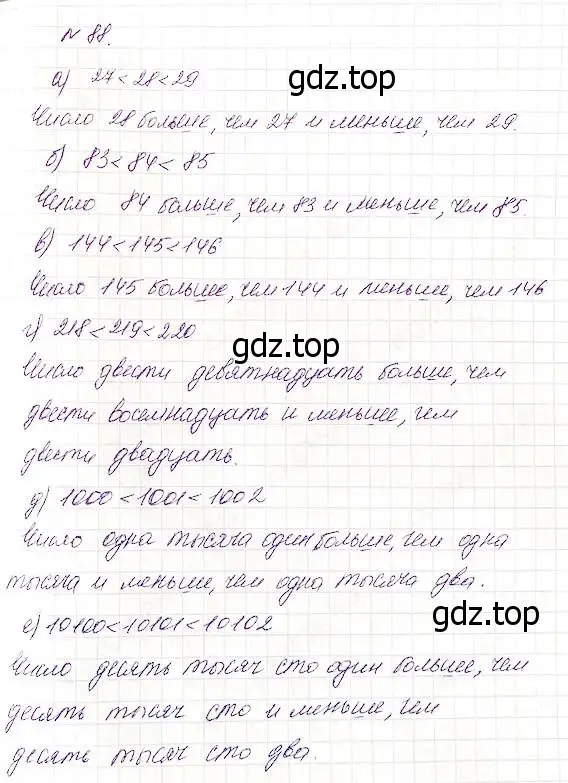 № 88.
а) 27 < 28 < 29
gdz.top
Число 28 больше, чем 27 и меньше, чем 29.
б) 83 < 84 < 85
Число 84 больше, чем 83 и меньше, чем 85.
в) 144 < 145 < 146
Число 145 больше, чем 144 и меньше, чем 146
г) 218 < 219 < 220
gdz.top
Число двести девятнадцать больше, чем
двести восемнадцать и меньше, чем
двести двадцать.
д) 1000 < 1001 < 1002
Число одна тысяча один больше, чем одна
тысяча и меньше, чем одна тысяча два.
е) 10100 < 10101 < 10102
gdz.top
Число десять тысяч сто один больше, чем
десять тысяч сто и меньше, чем
десять тысяч сто два.